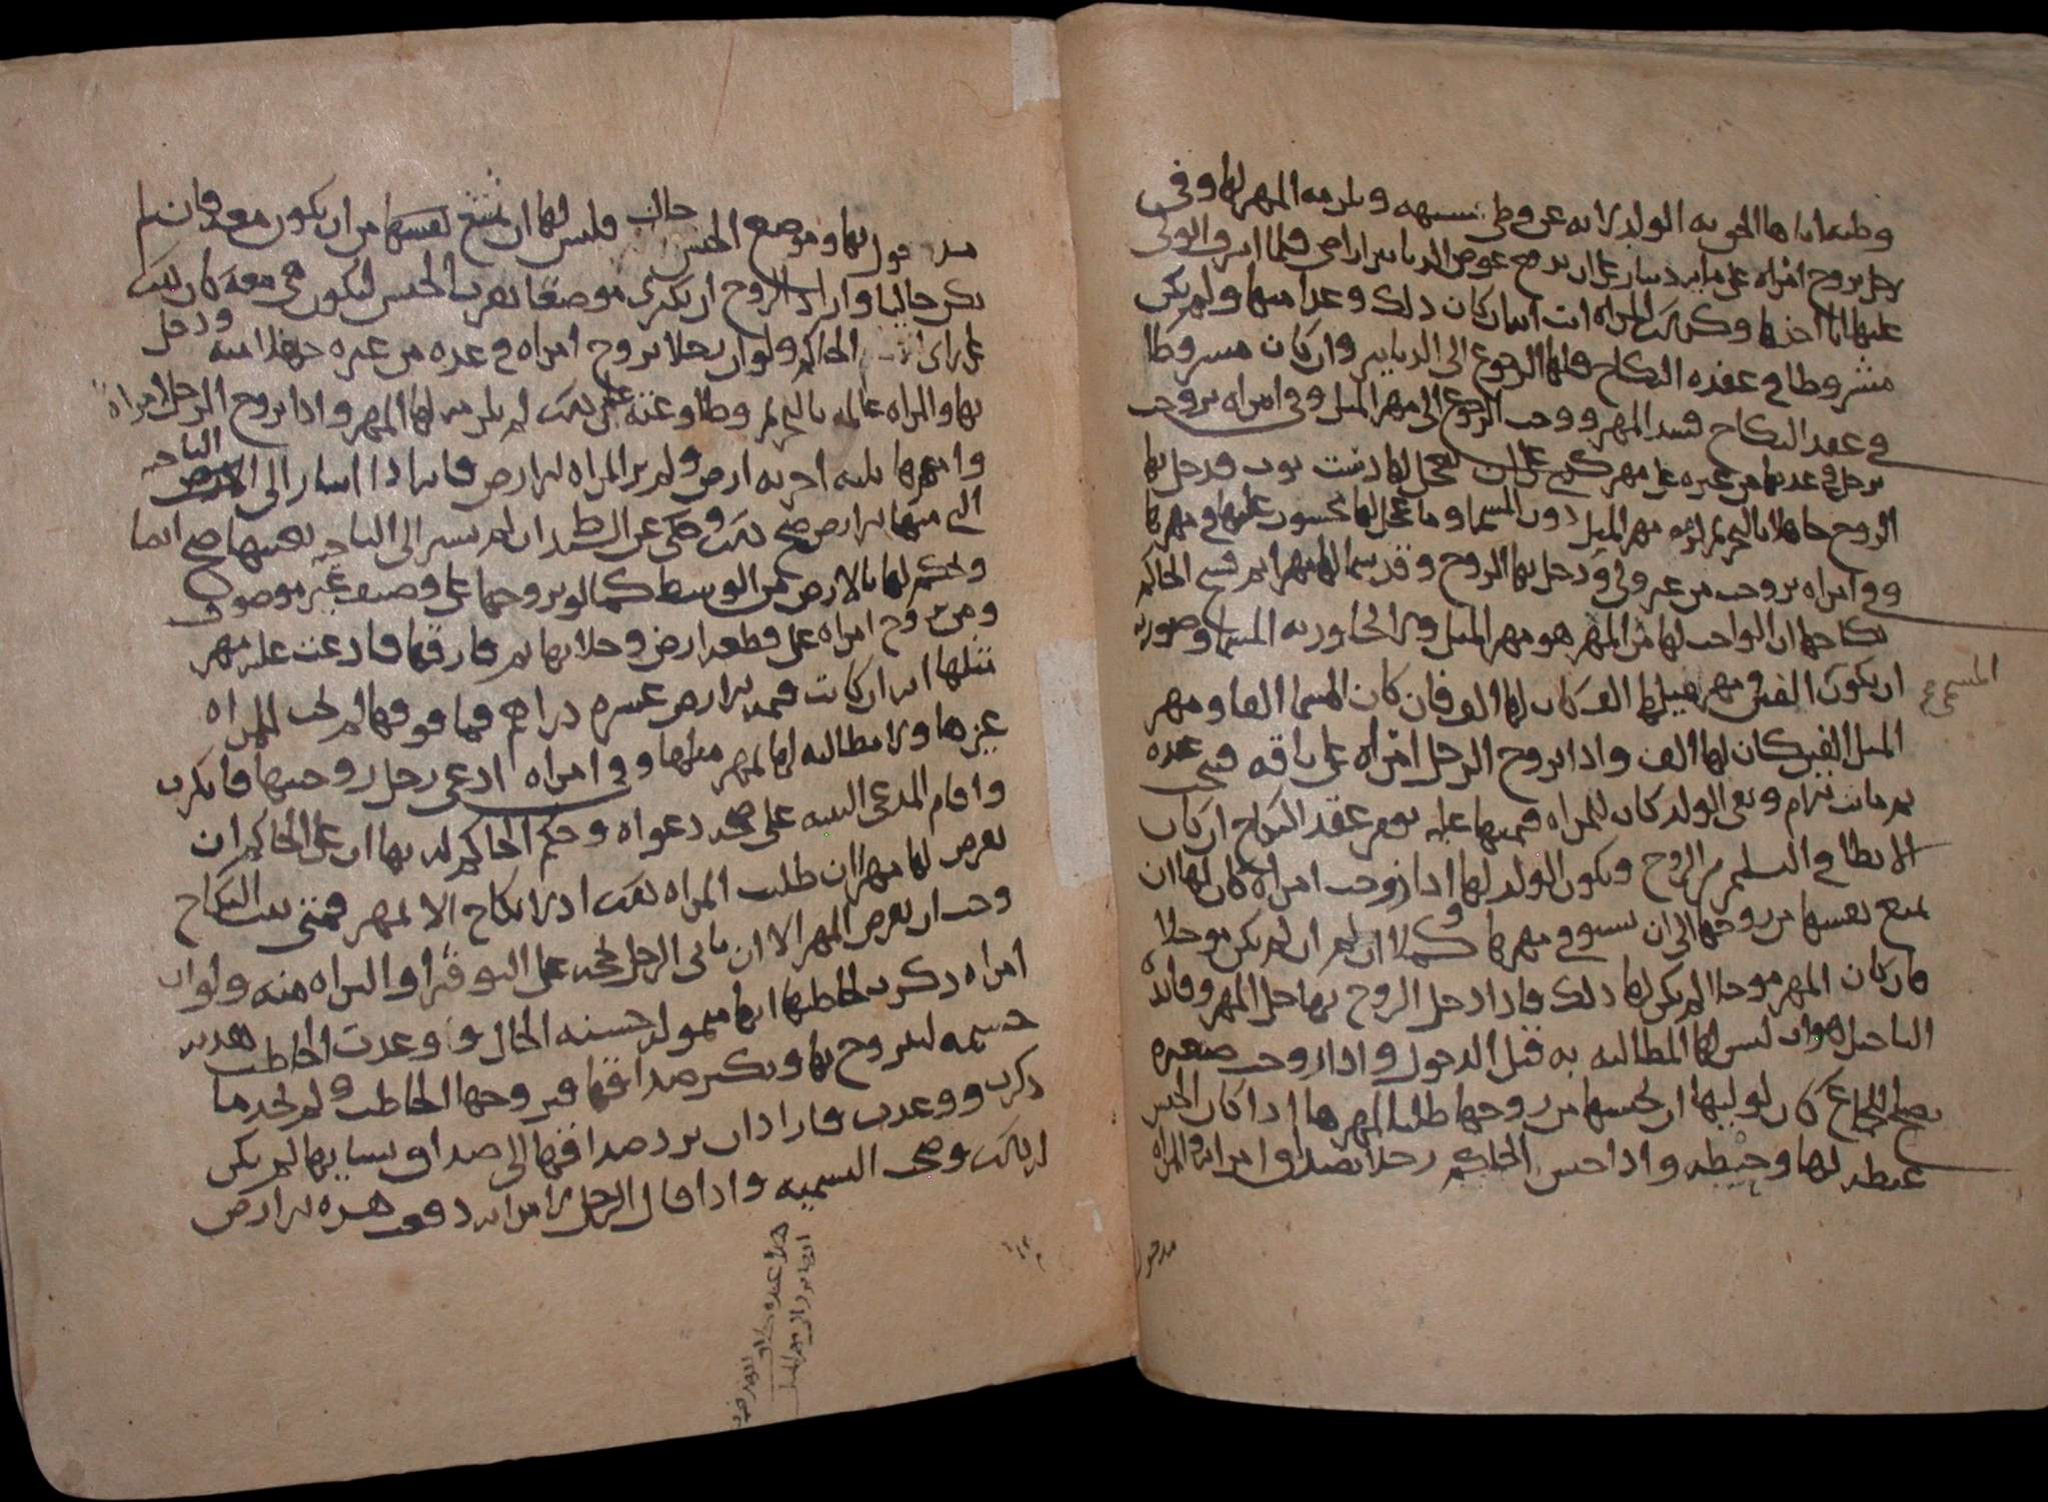 وطيه اياها الحق به الولد لانه عن وطئ شبهه ويلزمه المهر لها وفي
رجل تزوج امراه على مايه دينار على ان يدفع عوض الدنانير اراضي فلما اشرف الولي
عليها اباا اخذها وكرهت المراه ان كان ذلك وعدا منها ولم يكن
مشروطا في عقده النكاح فلها الرجوع الى الدنانير وان كان مشروطا
في عقد النكاح فسد المهر ووجب الرجوع الى مهر المثل وفي امراه تزوجت
برجل في عدتها من غيره على مهر على ان يعجل لها دست ثوب فدخل بها
الزوج جاهلا بالتحريم لزمه مهر المثل دون المسما وما عجل لها محسوب عليها في مهرها
وفي امراه تزوجت من غير ولي ودخل بها الزوج وقد سما لها مهرا ثم فسخ الحاكم
نكاحها ان الواجب لها من المهر هو مهر المثل ولا يجاوز به المسما وصورته
ان يكون الفين مهر مثلها الف كان لها الف فان كان المسما الفا ومهر
المسمى
المثل الفين كان لها الف واذا تزوج الرجل امراه على ناقه فنتجت عنده
ثم ماتت الام وبقي الولد كان للمراه قيمتها عليه يوم عقد النكاح ان كان
الابطا في التسليم من الزوج ويكون الولد لها اذا زوجت امراه كان لها ان
تمنع نفسها من زوجها الى ان تستوفي مهرها كملا ان لم يكن موجلا
فان كان المهر موجلا لم يكن لها ذلك فاذا دخل الزوج بها حل المهر وفايده
التاجيل هو ان ليس لها المطالبه به قبل الدخول واذا زوجت صغيره
يصلح للجماع كان لوليها ان يحبسها من زوجها طلبا لمهرها اذا كان الحبس
غبطه لها وحيطه واذا حبس الحاكم رجلا بصداق امراته والمراه
مدخول
مدخول بها وموضع الحبس خال فليس لها ان تمتنع نفسها من ان يكون معه فان لم
يكن خاليا واراد الزوج ان يكتري موضعا بقرب الحبس ليكون هي معه كان ذلك
على راي الحاكم ولو ان رجلا تزوج امراه في عده من غيره جهلا منه ودخل
بها والمراه عالمه بالتحريم وطاوعته على ذلك لم يلزمه لها المهر واذا تزوج الرجل امراه
وامهرها ثلثه اجربه ارض ولم تر المراه الارض فانه اذا اشار الى الناحيه
التي منها الارض صح ذلك وحكي عن ان لم يشر الى الناحيه بعينها صح ايضا
ويحكم لها بالارض من الوسط كما لو تزوجها على وصيف غير موصوف
ومن تزوج امراه على قطعه ارض وخلا بها ثم فارقها فادعت عليه مهر
مثلها انه ان كانت قيمه الارض عشره دراهم فما فوقها لم يجب للمراه
غيرها ولا مطالبه لها بمهر مثلها وفي امراه ادعى رجل زوجيتها فانكرت
واقام المدعي البينه على صحه دعواه وحكم الحاكم له بها ان على الحاكم ان
يفرض لها مهرا ان طلبت المراه ذلك اذ لا نكاح الا بمهر فمتى ثبت النكاح
وجب ان يفرض المهر الا ان ياتي الرجل بحجه على التوفير او البراه منه ولو ان
امراه ذكرت لخاطبها انها متموله حسنه الحال ووعدت الخاطب هديه
جسيمه ليتزوج بها ويكثر صداقها فتزوجها الخاطب ولم يجد ما
ذكرت ووعدت فاراد ان يرد صداقها الى صداق نسايها لم يكن
له ذلك وصحت التسميه واذا قال الرجل لامراته دفعت هذه الارض